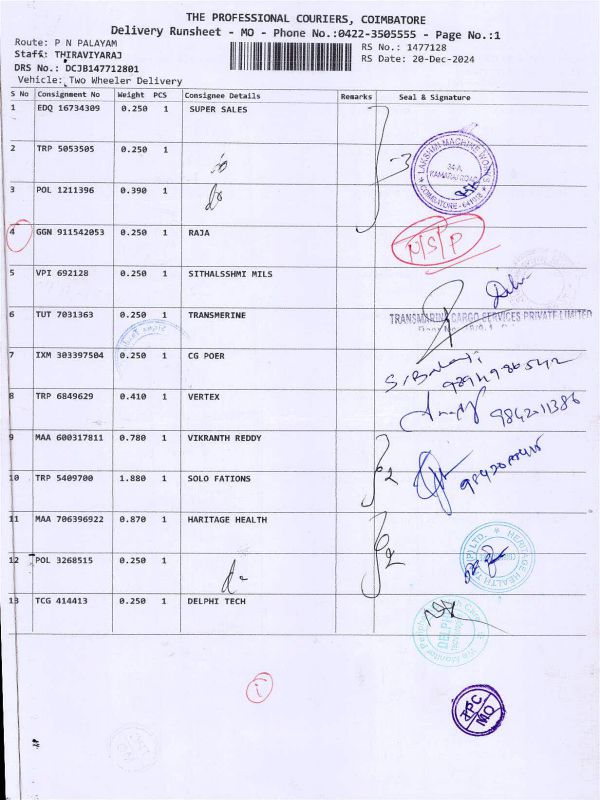 THE PROFESSIONAL COURIERS, COIMBATORE
Delivery Runsheet - MO - Phone No.:0422-3505555 - Page No.:1
Route: P N PALAYAM
RS No.: 1477128
Staff: THIRAVIYARAJ
RS Date: 20-Dec-2024
DRS No.: DCJB147712801
Vehicle: Two Wheeler Delivery
S No Consignment No Weight PCS Consignee Details Remarks Seal & Signature
1 EDQ 16734309 0.250 1 SUPER SALES
2 TRP 5053505 0.250 1 do
3 POL 1211396 0.390 1 do
3
LAKSHMI MACHINE WORKS
34-A,
KAMARAJ ROAD
COIMBATORE - 641018
4 GGN 911542053 0.250 1 RAJA
N/S/P
5 VPI 692128 0.250 1 SITHALSSHMI MILS
6 TUT 7031363 0.250 1 TRANSMERINE
TRANSMARINE CARGO SERVICES PRIVATE LIMITED
7 IXM 303397504 0.250 1 CG POER
8 TRP 6849629 0.410 1 VERTEX
9842011386
9 MAA 600317811 0.780 1 VIKRANTH REDDY
2
10 TRP 5409700 1.880 1 SOLO FATIONS
11 MAA 706396922 0.870 1 HARITAGE HEALTH
2
HERITAGE HEALTH
12 POL 3268515 0.250 1 do
13 TCG 414413 0.250 1 DELPHI TECH
DELPHI
1
TPC
MO